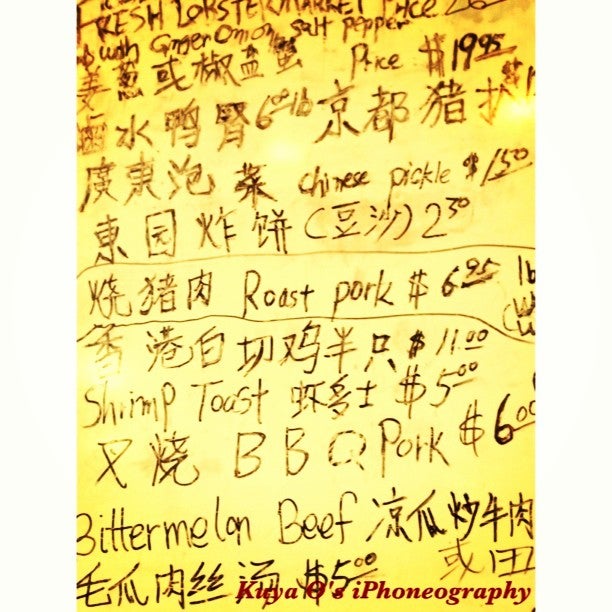 FRESH LOBSTER MARKET PRICE
with Ginger Onion salt pepper
姜葱或椒盐蟹 Price $19.95
卤水鸭肾 6.00 lb 京都猪扒
廣東泡菜 chinese pickle $1.50
東园炸饼(豆沙) 2.50
烧猪肉 Roast pork $6.95 lb
香港白切鸡半只 $11.00
Shrimp Toast 虾多士 $5.00
叉烧 BBQ Pork $6.00
Bittermelon Beef 凉瓜炒牛肉
毛瓜肉丝汤 $5.00 或田
Kuya O's iPhoneography